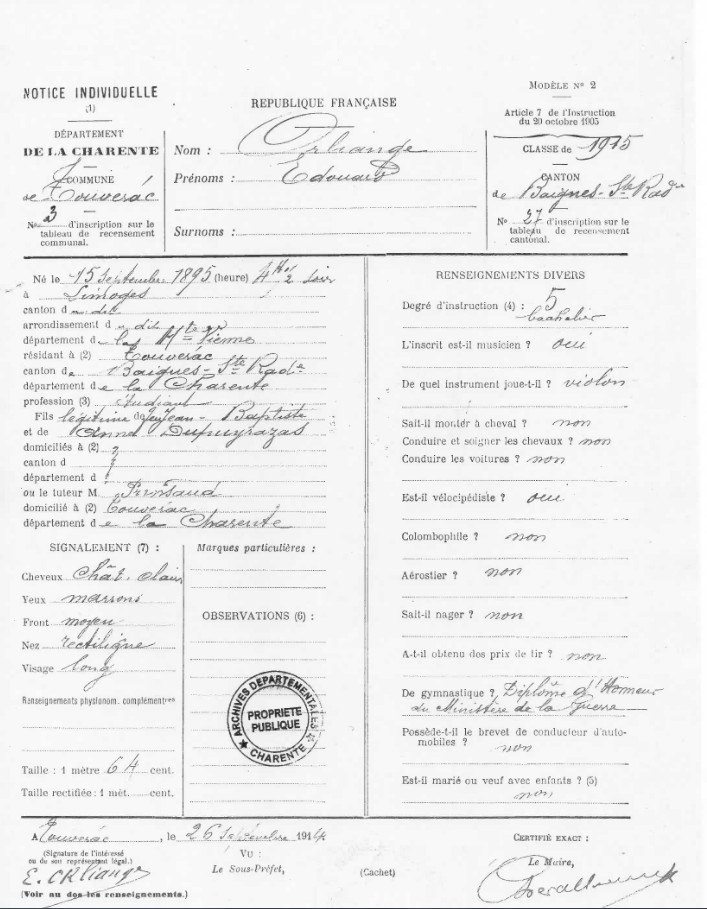 NOTICE INDIVIDUELLE
(1)
DÉPARTEMENT
DE LA CHARENTE
COMMUNE
de Touvérac
No 3 d'inscription sur le
tableau de recensement
communal.
REPUBLIQUE FRANÇAISE
Nom : Orliange
Prénoms : Edouard
Surnoms :
MODÈLE No 2
Article 7 de l'Instruction
du 20 octobre 1905
CLASSE de 1915
CANTON
de Baignes-Ste Rade
No 27 d'inscription sur le
tableau de recensement
cantonal.
Né le 15 septembre 1895 (heure) 4 hes soir
à Limoges
canton d u dit
arrondissement d u dit
département de la Hte Vienne
résidant à (2) Touvérac
canton de Baignes-Ste Rade
département de la Charente
profession (3) étudiant
Fils légitime de Jean-Baptiste
et de Anna Dupuyrazas
domiciliés à (2) ?
canton d ?
département d ?
ou le tuteur M.
domicilié à (2) Touvérac
département de la Charente
SIGNALEMENT (7) :
Cheveux Chât. clair
Yeux marrons
Front moyen
Nez rectiligne
Visage long
Renseignements physionom. complémentres
Taille : 1 mètre 64 cent.
Taille rectifiée : 1 mèt. cent.
Marques particulières :
OBSERVATIONS (6) :
ARCHIVES DEPARTEMENTALES
PROPRIETE
PUBLIQUE
CHARENTE
RENSEIGNEMENTS DIVERS
Degré d'instruction (4) : 5
bachelier
L'inscrit est-il musicien ? oui
De quel instrument joue-t-il ? violon
Sait-il monter à cheval ? non
Conduire et soigner les chevaux ? non
Conduire les voitures ? non
Est-il vélocipédiste ? oui
Colombophile ? non
Aérostier ? non
Sait-il nager ? non
A-t-il obtenu des prix de tir ? non
De gymnastique ? Diplôme d'Honneur
du Ministère de la Guerre
Possède-t-il le brevet de conducteur d'auto-
mobiles ? non
Est-il marié ou veuf avec enfants ? (5)
non
A Touvérac, le 26 Décembre 1914
(Signature de l'intéressé
ou de son représentant légal.)
E. ORliange
(Voir au dos les renseignements.)
VU :
Le Sous-Préfet,
(Cachet)
CERTIFIÉ EXACT :
Le Maire,